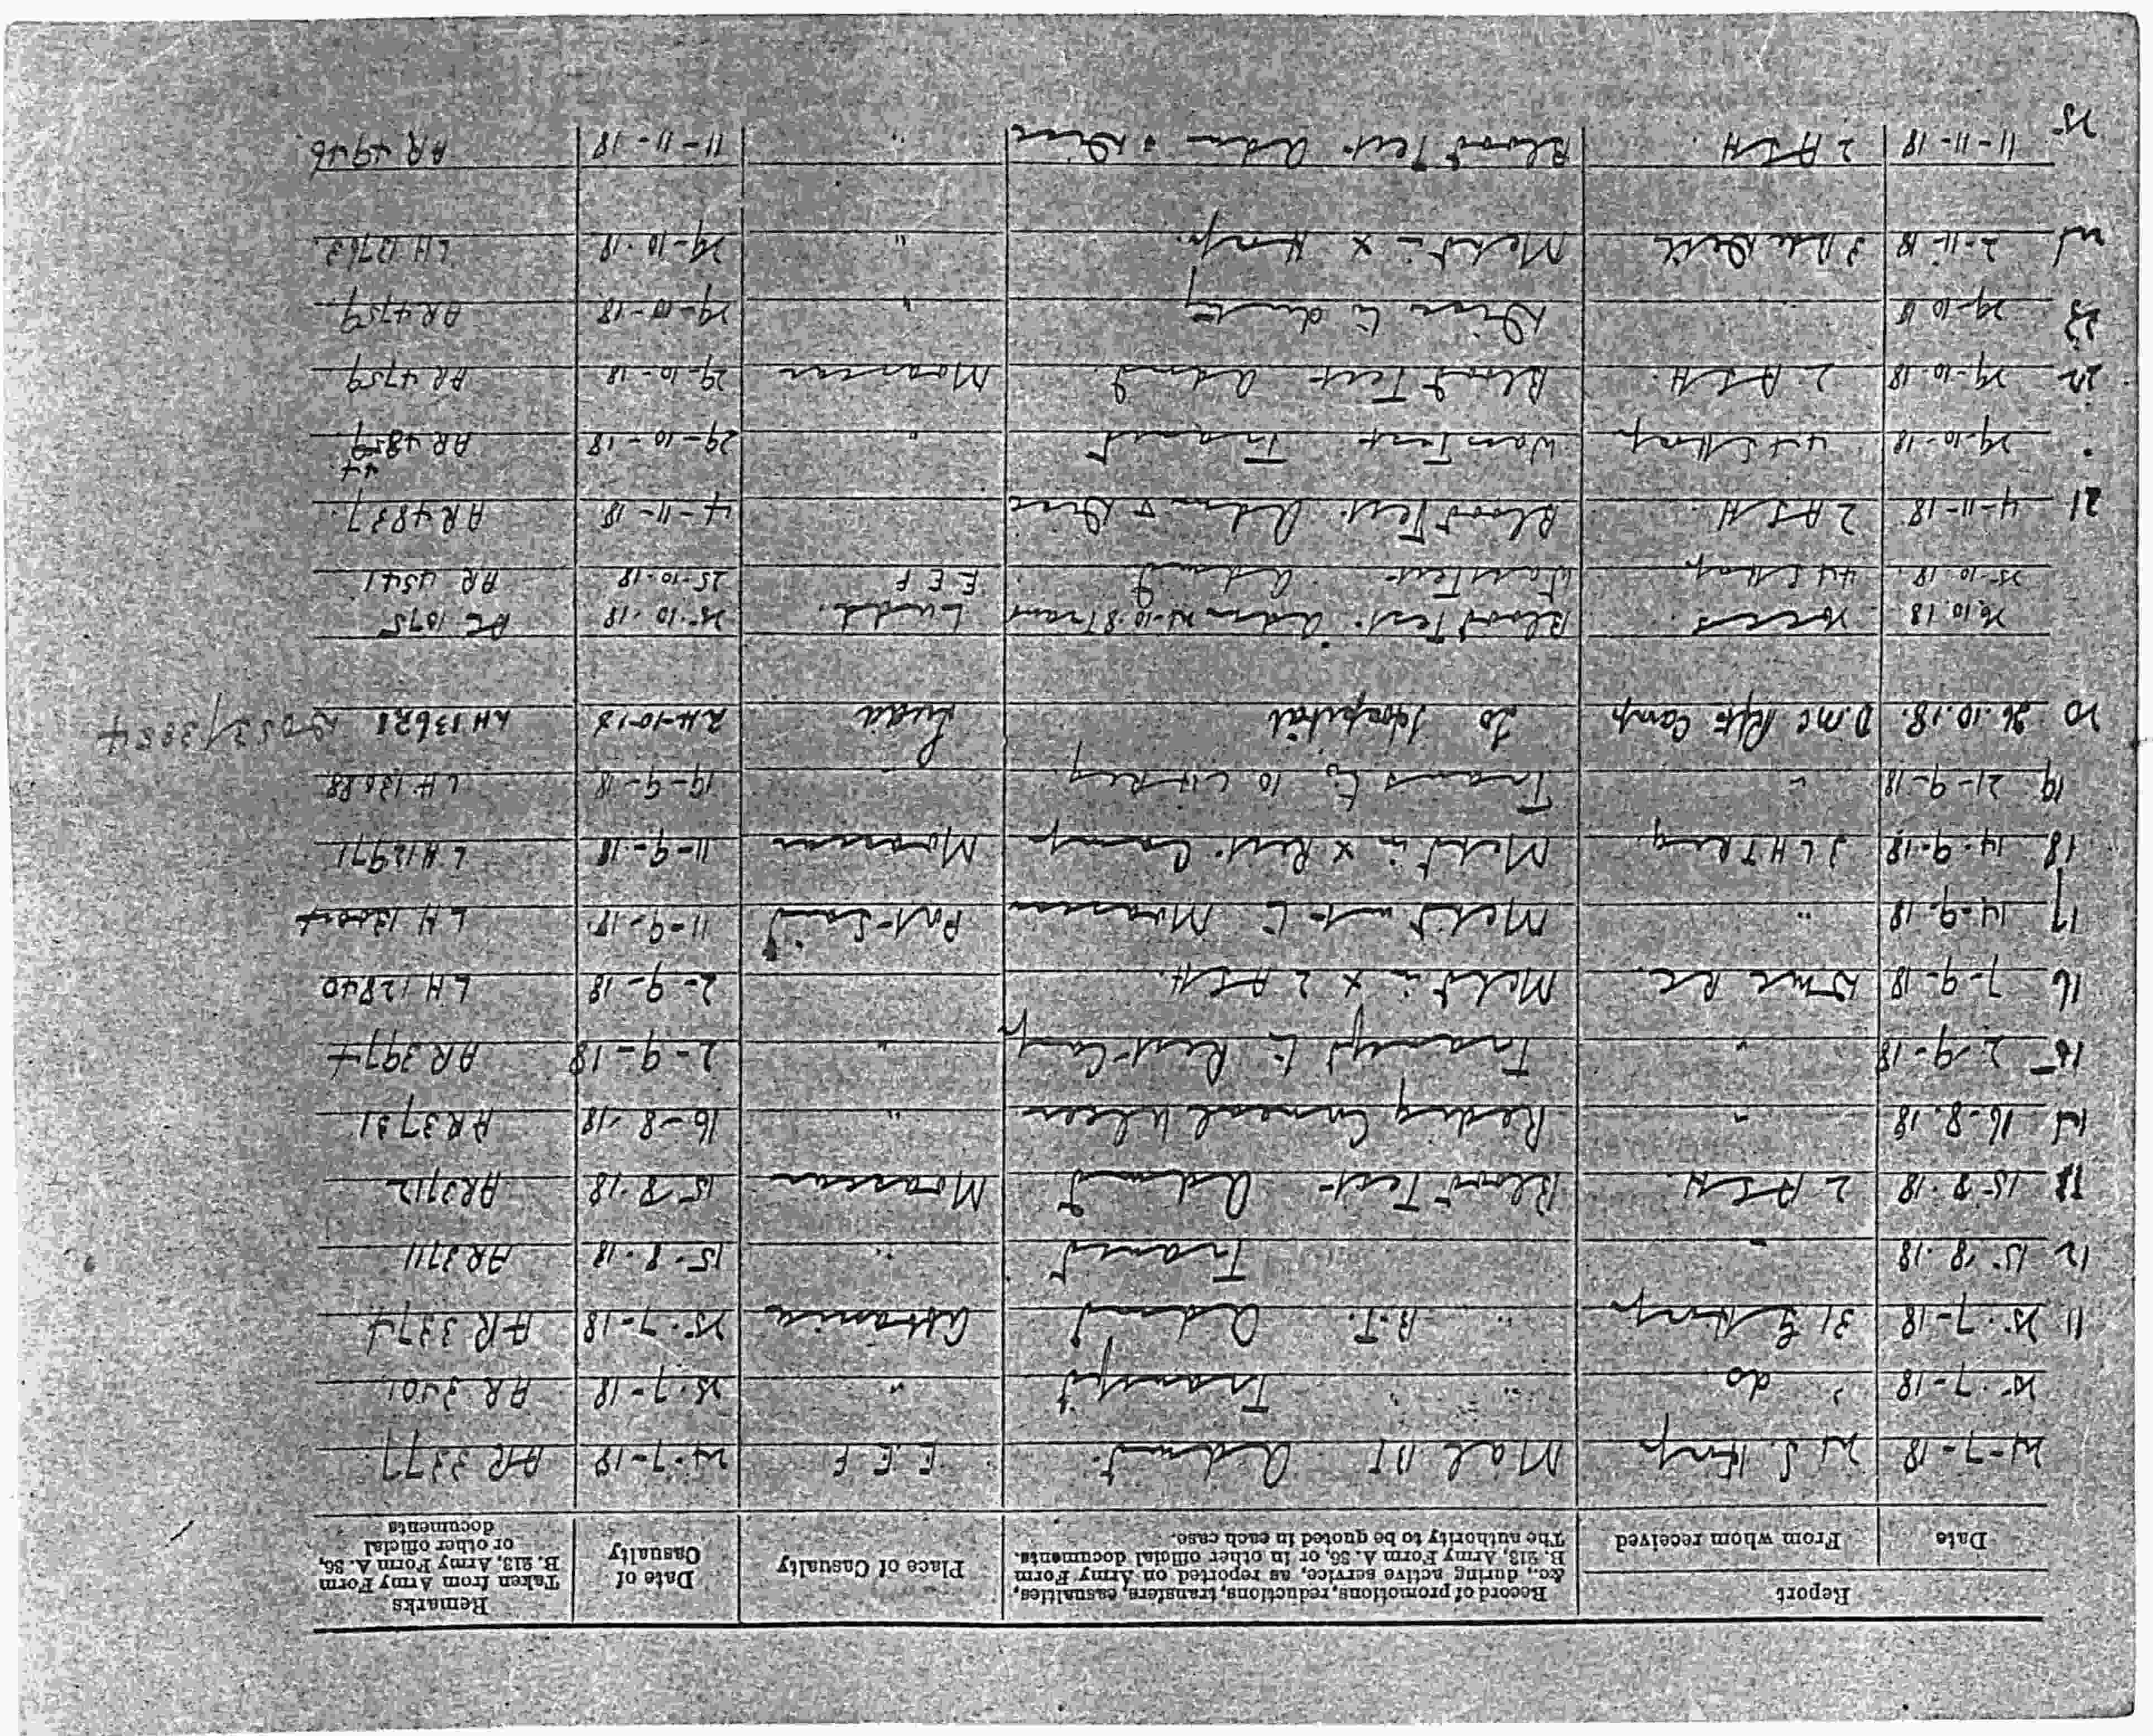 Report
Record of promotions, reductions, transfers, casualties, &c., during active service, as reported on Army Form B. 213, Army Form A. 36, or in other official documents. The authority to be quoted in each case.
Remarks
Taken from Army Form B. 213, Army Form A. 36, or other official documents
Date From whom received Place of Casualty Date of Casualty
24-7-18 24 S. Hosp Mal BT admit E E F 24-7-18 AR 3377
25-7-18 " do " " Transfd " 25-7-18 AR 3401
11 25-7-18 31 G Hosp " B.T. admit Abbassia 25-7-18 AR 3374
12 15-8-18 " Transd " 15-8-18 AR 3711
13 15-8-18 2 ASH Blood Test admd Moascar 15-8-18 AR 3712
14 16-8-18 " Rediag Corneal Ulcer " 16-8-18 AR 3731
15 2-9-18 " Transfd to Rest Camp " 2-9-18 AR 3974
16 7-9-18 DMC RC M/O in x 2 ASH 2-9-18 LH 12840
17 14-9-18 " M/O out to Moascar Port Said 11-9-18 LH
18 14-9-18 3 LH T Reg M/O in x Rest Camp Moascar 11-9-18 LH 12971
19 21-9-18 " Trans to 10 Lt H Reg 19-9-18 LH 13088
20 26.10.18. D.MC Rft Camp To Hospital Ludd 24-10-18 LH 13628
26.10.18 Blood Test adm 24-10-18 Trans Ludd 25-10-18 AC 1075
25-10-18 44 S Hosp admd E E F 25-10-18 AR 4541
21 4-11-18 2 ASH Blood Test Adm & Disc 4-11-18 AR 4837
29-10-18 44 S Hosp Transd " 29-10-18 AR
22 29-10-18 2 ASH Blood Test admd Moascar 29-10-18 AR 4759
23 29-10-18 Disc to duty " 29-10-18 AR 4759
24 2-11-18 M/O in x Hosp " 29-10-18 LH 13763
25 11-11-18 2 ASH Blood Test adm & Disc " 11-11-18 AR 4946